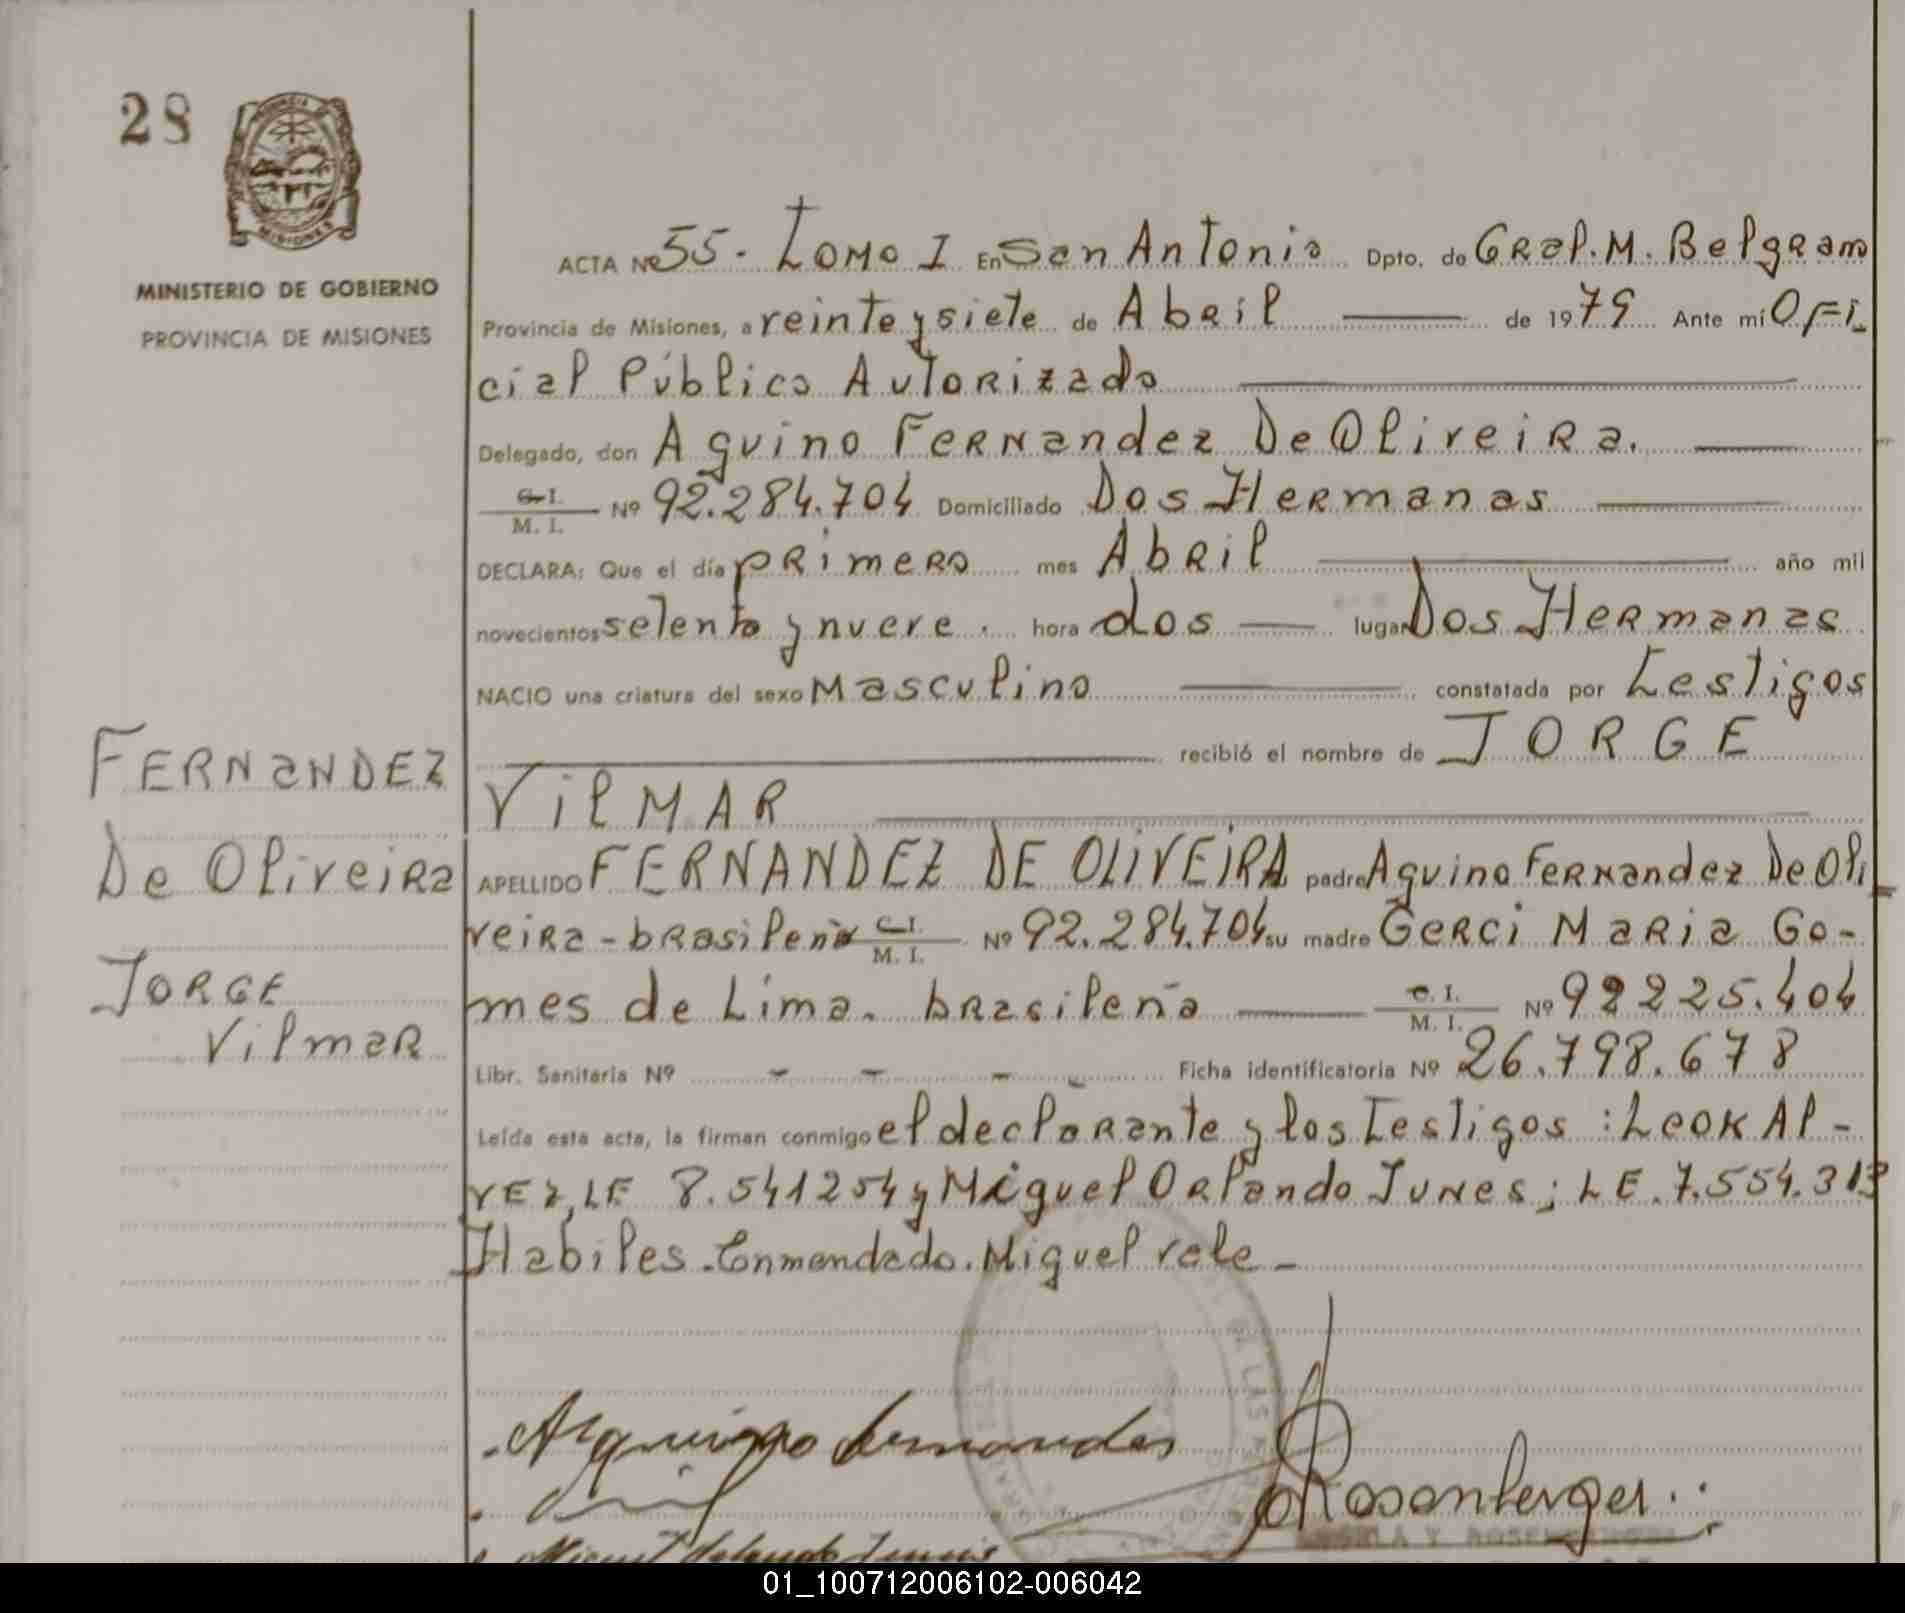 28
MISIONES
MINISTERIO DE GOBIERNO
PROVINCIA DE MISIONES
ACTA Nº 55 - Tomo I En San Antonio Dpto. de Gral. M. Belgrano
Provincia de Misiones, a veinte y siete de Abril de 1979 Ante mí Ofi
cial Público Autorizado
Delegado, don Aquino Fernandez De Oliveira.
C.I. / M. I. Nº 92.284.704 Domiciliado Dos Hermanas
DECLARA: Que el día primero mes Abril año mil
novecientos setenta y nueve. hora dos lugar Dos Hermanas
NACIO una criatura del sexo Masculino constatada por testigos
recibió el nombre de JORGE
VilMAR
APELLIDO FERNANDEZ DE OLIVEIRA padre Aquino Fernandez De Oli
veira - brasileño C.I. / M. I. Nº 92.284.704 su madre Gerci Maria Go-
mes de Lima. brasileña C. I. / M. I. Nº 92225.404
Libr. Sanitaria Nº - - - - Ficha identificatoria Nº 26.798.678
Leída esta acta, la firman conmigo el declarante y los testigos: Leok Al-
vez, LE 8.541254 y Miguel Orlando Junes; LE. 7.554.313
Habiles. Enmendado. Miguel vale -
FERNANDEZ
De Oliveira
JORGE
Vilmar
Aquino Fernandes
Rosenberger
01_100712006102-006042